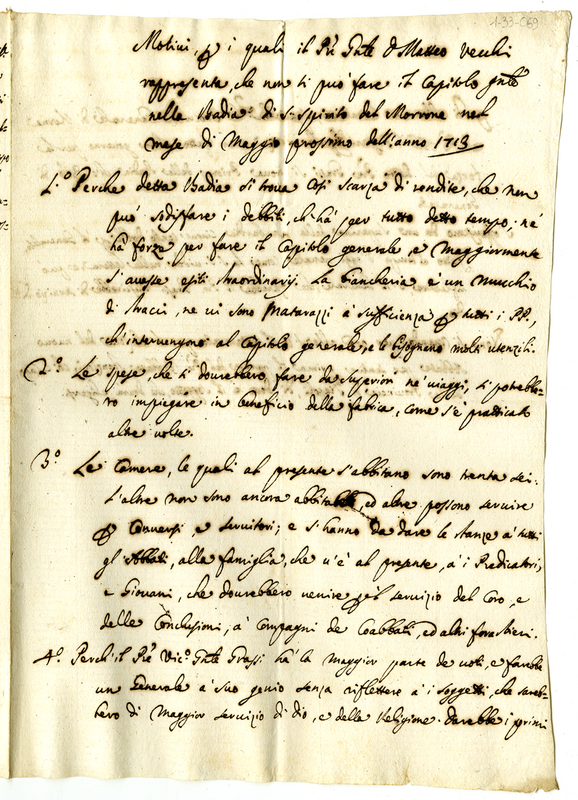 1-33-C69
Motivi, p i quali il Prē Gñle D Matteo Vecchi
rappresenta, che non si può fare il Capitolo gñle
nella Badia di S. Spirito del Morrone nel
mese di Maggio prossimo dell'anno 1713
1.° Perche detta Badia si trova così scarza di rendite, che non
può sodisfare i debbiti, ch'hà per tutto detto tempo; nè
hà forze per fare il Capitolo generale, e maggiormente
s'avesse esiti straordinarij. La biancheria è un mucchio
di stracci, ne vi sono matarazzi à sufficienza p tutti i PP.,
ch'intervengono al Capitolo generale, e le bisognano molti utenzili.
2.° Le spese, che si dourebbero fare da Superiori nè viaggi, si potrebbe-
ro impiegare in beneficio della fabrica, come s'è pratticato
altre volte.
3.° Le Camere, le quali al presente s'abbitano sono trenta sei.
L'altre non sono ancora abbitabili, ed altre possono servire
p Conversi, e servitori; e si hanno da dare le stanze à tutti
gl'Abbati, alla famiglia, che v'è al presente, à i Predicatori,
e Giovani, che dourebbero venire pel servizio del Coro, e
delle Conclusioni, à Compagni de Coabbati, ed altri forastieri.
4.° Perch'il Prē Vic.° Gñle Grassi hà la maggior parte de voti, e farebbe
un Generale à suo genio senza riflettere à i soggetti, che sareb-
bero di maggior servizio di Dio, e della Religione. darebbe i primi